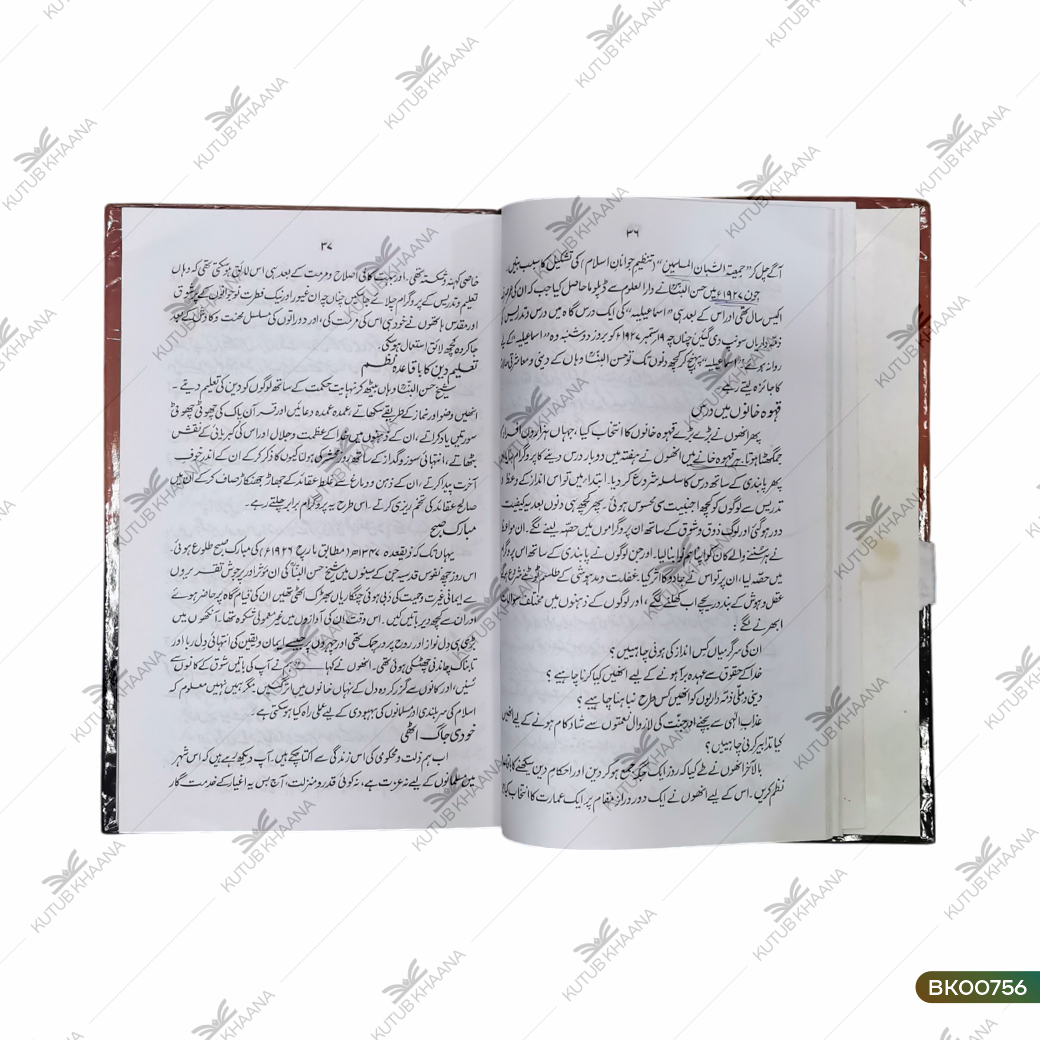 ۳۶
آگے چل کر "جمعیۃ الشبان المسلمین" (تنظیم جوانانِ اسلام) کی تشکیل کا سبب بنیں۔
جون ۱۹۲۷ء میں حسن البنّا نے دارالعلوم سے ڈپلوما حاصل کیا جب کہ ان کی عمر
اکیس سال تھی اور اس کے بعد ہی "اسماعیلیہ" کی ایک درس گاہ میں درس و تدریس کی
ذمّہ داریاں سونپ دی گئیں چناں چہ ۱۹ ستمبر ۱۹۲۷ء کو بروز دوشنبہ وہ "اسماعیلیہ" کے
روانہ ہوئے "اسماعیلیہ" پہنچ کر کچھ دنوں تک تو حسن البنّا وہاں کے دینی و معاشرتی حالات
کا جائزہ لیتے رہے۔
قہوہ خانوں میں درس
پھر انھوں نے بڑے بڑے قہوہ خانوں کا انتخاب کیا، جہاں ہزاروں افراد کا
جمگھٹا ہوتا ہر قہوہ خانے میں انھوں نے ہفتہ میں دو بار درس دینے کا پروگرام بنایا اور
پھر پابندی کے ساتھ درس کا سلسلہ شروع کر دیا۔ ابتداء میں تو اس انداز کے وعظ و
تدریس سے لوگوں کو کچھ اجنبیت سی محسوس ہوئی۔ پھر کچھ ہی دنوں بعد یہ کیفیت
دور ہو گئی اور لوگ ذوق و شوق کے ساتھ ان پروگراموں میں حصّہ لینے لگے۔ ان مواعظ
نے ہر سننے والے کان کو اپنا ہم نوا بنا لیا۔ اور جن لوگوں نے پابندی کے ساتھ اس پروگرام
میں حصّہ لیا، ان پر تو اس نے جادو کا اثر کیا۔ غفلت و مدہوشی کے طلسم ٹوٹنے شروع ہو گئے
عقل و ہوش کے بند دریچے اب کھلنے لگے، اور لوگوں کے ذہنوں میں مختلف سوالات
ابھرنے لگے :
ان کی سرگرمیاں کس انداز کی ہونی چاہییں ؟
خدا کے حقوق سے عہدہ برآ ہونے کے لیے انھیں کیا کرنا چاہیے ؟
دینی و ملّی ذمّہ داریوں کو انھیں کس طرح نباہنا چاہیے ؟
عذابِ الٰہی سے بچنے اور جنّت کی لازوال نعمتوں سے شاد کام ہونے کے لیے انھیں
کیا تدابیر کرنی چاہییں ؟
بالآخر انھوں نے طے کیا کہ روز ایک جگہ جمع ہو کر دین اور احکامِ دین سیکھنے کا باقاعدہ
نظم کریں۔ اس کے لیے انھوں نے ایک دور دراز مقام پر ایک عمارت کا انتخاب کیا
۳۷
خاصی کہنہ و شکستہ تھی۔ اور بہت کافی اصلاح و مرمت کے بعد ہی اس لائق ہو سکتی تھی کہ وہاں
تعلیم و تدریس کے پروگرام چلائے جا سکیں چناں چہ ان غیور اور نیک فطرت نوجوانوں کے پرشوق
اور مقدس ہاتھوں نے خود ہی اس کی مرمت کی، اور دو راتوں کی مسلسل محنت و کاوش کے بعد
جا کر وہ کچھ لائق استعمال ہو سکی۔
تعلیمِ دین کا باقاعدہ نظم
شیخ حسن البنّا وہاں بیٹھ کر نہایت حکمت کے ساتھ لوگوں کو دین کی تعلیم دیتے۔
انھیں وضو اور نماز کے طریقے سکھاتے، عمدہ عمدہ دعائیں اور قرآن پاک کی چھوٹی چھوٹی
سورتیں یاد کراتے، ان کے ذہنوں میں خدا کے عظمت و جلال اور اس کی کبریائی کے نقش
بٹھاتے، انتہائی سوز و گداز کے ساتھ روز محشر کی ہولناکیوں کا ذکر کر کے ان کے اندر خوفِ
آخرت پیدا کرتے، ان کے ذہن و دماغ سے غلط عقائد کے جھاڑ جھنکاڑ صاف کر کے ان میں
صالح عقائد کی تخم ریزی کرتے۔ اس طرح یہ پروگرام برابر چلتے رہے۔
مبارک صبح
یہاں تک کہ ذیقعدہ ۱۳۴۷ھ (مطابق مارچ ۱۹۲۶ء) کی مبارک صبح طلوع ہوئی۔
اس روز چھ نفوسِ قدسیہ جن کے سینوں میں شیخ حسن البنّا کی ان مؤثر اور پرجوش تقریروں
سے ایمانی غیرت و حمیت کی دبی ہوئی چنگاریاں بھڑک اٹھی تھیں ان کی قیام گاہ پر حاضر ہوئے
اور ان سے کچھ دیر باتیں کیں۔ اس وقت ان کی آوازوں میں غیر معمولی شکوہ تھا۔ آنکھوں میں
بڑی ہی دل نواز اور روح پرور چمک تھی اور چہروں پر جیسے ایمان و یقین کی انتہائی دل ربا اور
تابناک چاندنی چھٹکی ہوئی تھی۔ انھوں نے کہا ـــــ "ہم نے آپ کی باتیں شوق کے کانوں سے
سُنیں، اور کانوں سے گزر کر وہ دل کے نہاں خانوں میں اتر گئیں۔ مگر ہمیں نہیں معلوم کہ
اسلام کی سربلندی اور مسلمانوں کی بہبودی کے لیے عملی راہ کیا ہو سکتی ہے۔
خودی جاگ اٹھی
اب ہم ذلت و محکومی کی اس زندگی سے اکتا چکے ہیں۔ آپ دیکھ رہے ہیں کہ اس شہر
میں مسلمانوں کے لیے نہ عزت ہے، نہ کوئی قدر و منزلت، آج بس یہ اغیار کے خدمت گار
BK00756